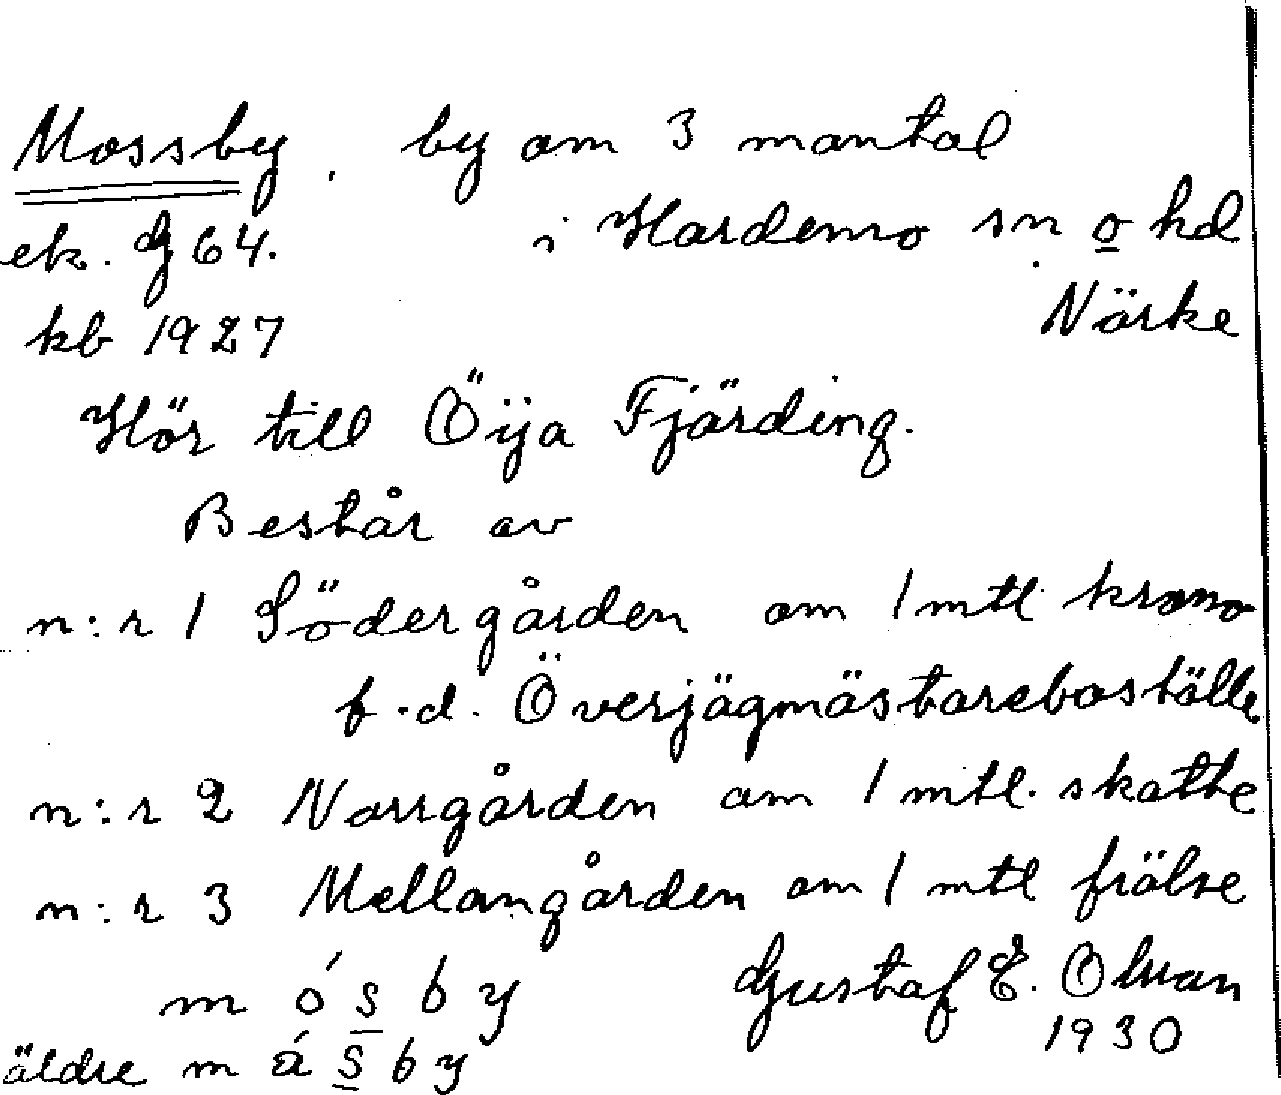 Mossby, by om 3 mantal
ek. G 64. i Hardemo sn o hd
kb 1927 Närke
Hör till Öija Fjärding.
Består av
n:r 1 Södergården om 1 mtl krono
f.d. Överjägmästareboställe.
n:r 2 Norrgården om 1 mtl. skatte
n:r 3 Mellangården om 1 mtl frälse
m ó s b y Gustaf E. Olman
1930
äldre m á s b y